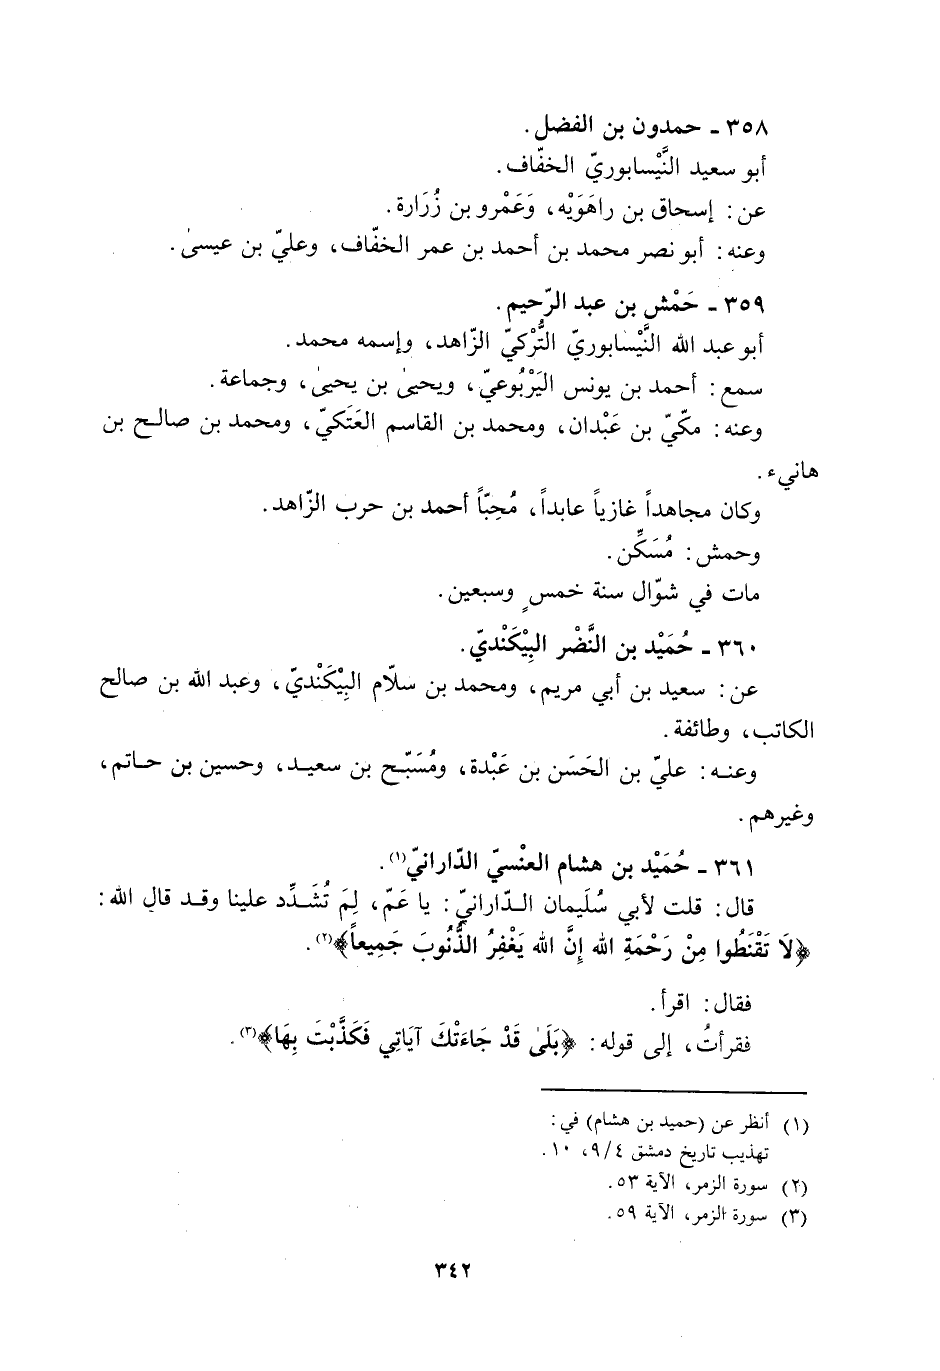 ٣٥٨ ـ حمدون بن الفضل.
أبو سعيد النَّيْسابوريّ الخفّاف.
عن: إسحاق بن راهَوَيْه، وَعَمْرو بن زُرَارة.
وعنه: أبو نصر محمد بن أحمد بن عمر الخفّاف، وعليّ بن عيسىٰ.
٣٥٩ ـ حَمْش بن عبد الرّحيم.
أبو عبد الله النَّيْسابوريّ التُّرْكيّ الزّاهد، وإسمه محمد.
سمع: أحمد بن يونس اليَرْبُوعيّ، ويحيىٰ بن يحيىٰ، وجماعة.
وعنه: مكّيّ بن عَبْدان، ومحمد بن القاسم العَتَكيّ، ومحمد بن صالح بن
هانيء.
وكان مجاهداً غازياً عابداً، مُحِبّاً أحمد بن حرب الزّاهد.
وحمش: مُسَكِّن.
مات في شوّال سنة خمسٍ وسبعين.
٣٦٠ ـ حُمَيْد بن النَّضْر البِيْكَنْديّ.
عن: سعيد بن أبي مريم، ومحمد بن سلّام البِيْكَنْديّ، وعبد الله بن صالح
الكاتب، وطائفة.
وعنه: عليّ بن الحَسَن بن عَبْدة، ومُسَبّح بن سعيد، وحسين بن حاتم،
وغيرهم.
٣٦١ ـ حُمَيْد بن هشام العنْسيّ الدّارانيّ(١).
قال: قلت لأبي سُلَيمان الدّارانيّ: يا عَمّ، لِمَ تُشَدِّد علينا وقد قال الله:
﴿لَا تَقْنَطُوا مِنْ رَحْمَةِ الله إِنَّ الله يَغْفِرُ الذُّنُوبَ جَمِيعاً﴾(٢).
فقال: اقرأ.
فقرأتُ، إلى قوله: ﴿بَلَىٰ قَدْ جَاءَتْكَ آيَاتِي فَكَذَّبْتَ بِهَا﴾(٣).
(١) أنظر عن (حميد بن هشام) في:
تهذيب تاريخ دمشق ٩/٤، ١٠.
(٢) سورة الزمر، الآية ٥٣.
(٣) سورة الزمر، الآية ٥٩.
٣٤٢